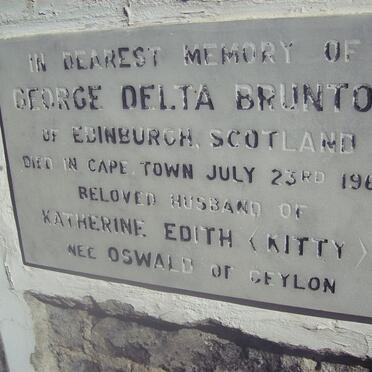 IN DEAREST MEMORY OF
GEORGE DELTA BRUNTO
OF EDINBURGH, SCOTLAND
DIED IN CAPE TOWN JULY 23RD 196
BELOVED HUSBAND OF
KATHERINE EDITH (KITTY)
NEE OSWALD OF CEYLON